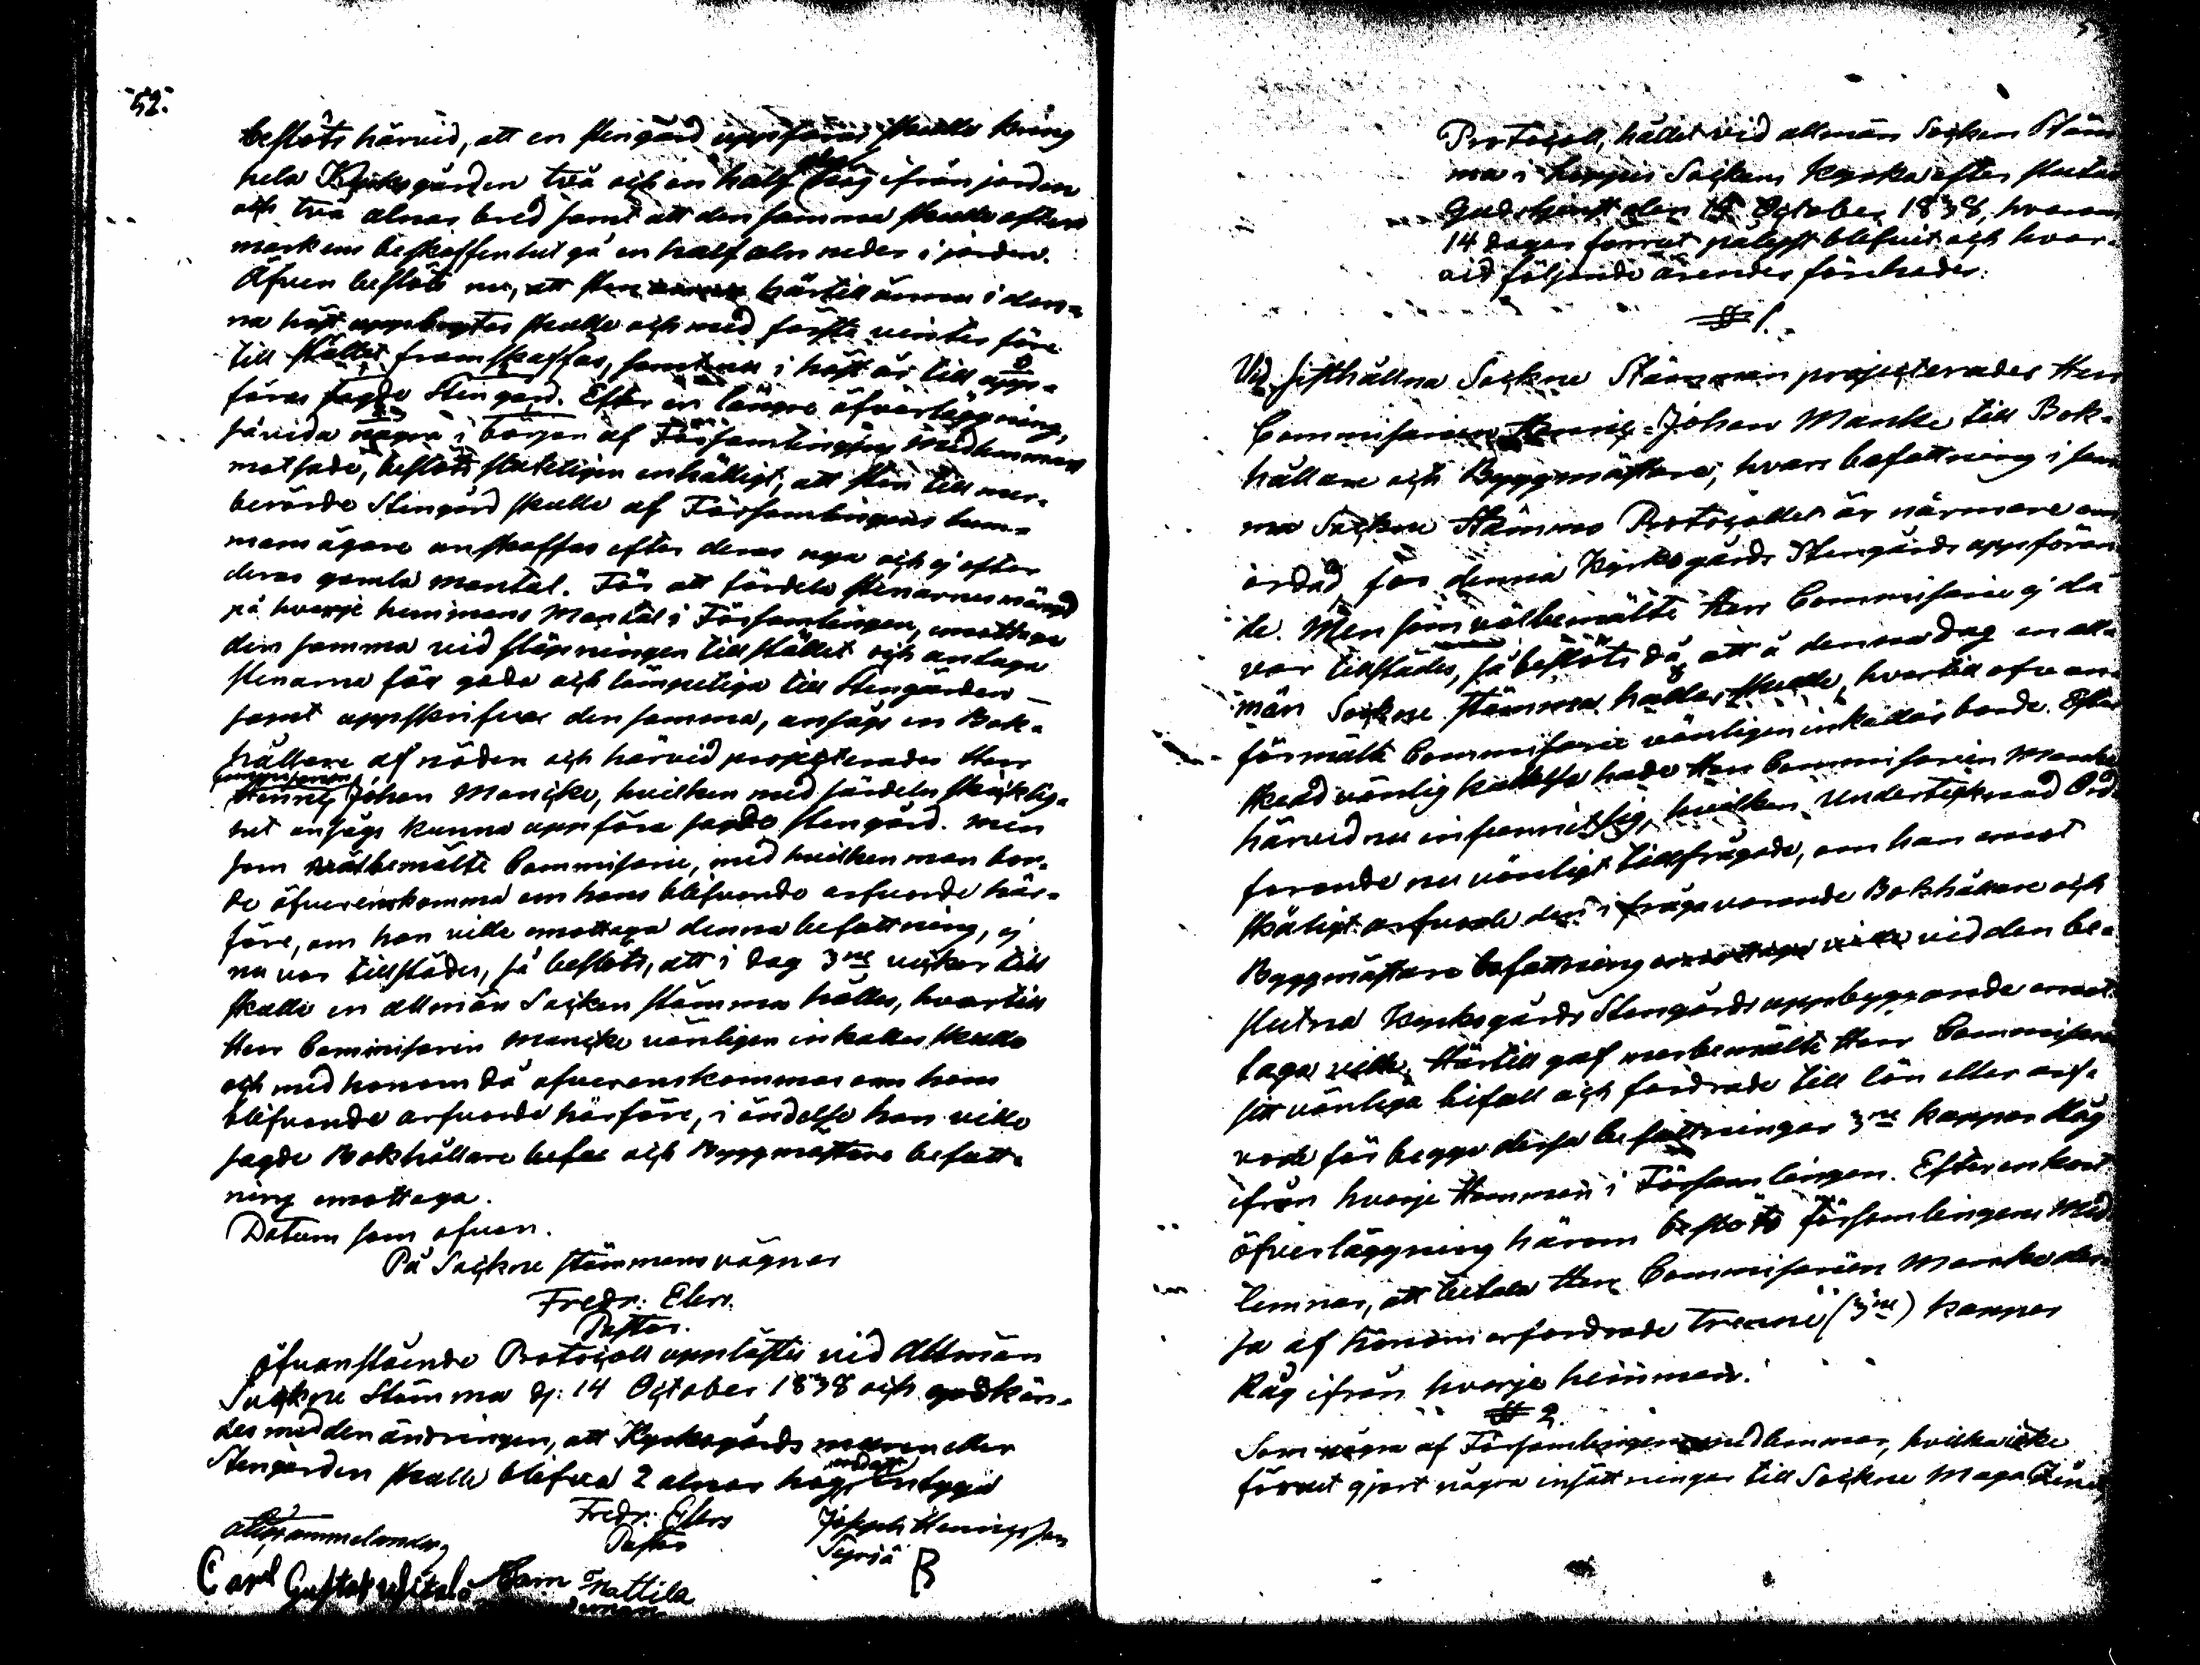 52.
beslöts härvid, att en stengård uppföras skulle kring
hela Kyrkogården två och en half aln hög ifrån jorden
och två alnar bred samt att den samma skulle efter
markens beskaffenhet gå en half aln neder i jorden.
Äfven beslöts nu, att sten härtill ännu i den-
na höst uppbrytas skulle och med första vinter före
till stället framskaffas, samt i höst år till upp-
föras sagde Stengård. Efter en längre öfverläggning,
såvida några i början af Församlingens medlemmar
motsade, beslöts sluteligen enhälligt, att sten till mer-
berörde Stengård skulle af Församlingens hem-
mans ägare anskaffas efter deras nya och ej efter
deras gamla mantal. För att fördela stenarnes mängd
på hvarje hemmans Mantal i Församlingen, emottaga
den samma vid släpningen till stället och antaga
stenarna för goda och lämpeliga till Stengården
samt uppskrifva den samma, ansågs en Bok-
hållare af nöden och härvid projecterades Herr
Commissarien
Johan Mancke, hvilken med särdeles skicklig-
het ansågs kunna uppföra sagde stengård. Men
som välbemälte Commissarie, med hvilken man bor-
de öfverenskomma om hans blifvande arfvode här-
före, om han ville emottaga denna befattning, ej
nu var tillstädes, så beslöts, att i dag 3ne veckor till
skulle en allmän Socken stämma hålles, hvartill
Herr Commissarien Mancke vänligen inkallas skulle
och med honom då öfverenskommas om hans
blifvande arfvode härföre, i händelse han ville
sagde Bokhållare befat och Byggmästare befatt-
ning emottaga.
Datum som ofvan.
På Sockne stämmans vägnar
Fredr: Elers.
Pastor.
Ofvanstående Protocoll upplästes vid Allmän
Sockne Stämma d: 14 October 1838 och godkän-
des med den ändringen, att Kyrkogårds muren eller
Stengården skulle blifva 2 alnar hög, endast
Fredr: Elers
Pastor
Joseph Heningsson
Seppä
Carl Gustaf
Mattila
Protocoll, hållet vid allmän Socken Stäm
ma i Socken Kyrka efter slutad
Gudstjenst den 14 October 1838, hvarom
14 dagar förrut pålyst blifvit och hvar-
vid följande ärender förehades:
§ 1.
Vid sisthållna Sockne Stämman projecterades Herr
Commissarien Johan Mancke till Bok-
hållare och Byggmästare, hvars befattning i sam
ma Sockne Stämmas Protocollet är närmare om
ordad, för denna Kyrkogårds Stengårds uppföran
de. Men som välbemälte Herr Commissarie ej då
var tillstädes, så beslöts då att å denna dag en all-
män Sockne stämma hållas skulle, hvartill ofvan-
förmälte Commissarie vänligen inkallas borde. Efter
skedd vänlig kallelse hade Herr Commissarien Mancke
härvid nu infunnit sig, hvilken Undertecknad Ord-
förande nu vänligt tillfrågade, om han emot
skäligt arfvode den i fråga varande Bokhållare och
Byggmästare befattning emottaga ville vid den be-
slutna Kyrkogårds Stengårds uppbyggande emot
taga ville. Härtill gaf merbemälte Herr Commissarie
sitt vänliga bifall och fordrade till lön eller arf-
vode för begge dessa befattningar 3ne kappar Råg
ifrån hvarje Hemman i Församlingen. Efter en kort
öfverläggning härom beslöto Församlingens Med
lemmar, att betala Herr Commissarien Mancke des-
sa af honom erfordrade Trenne (3ne) kappar
Råg ifrån hvarje hemman.
§ 2.
Som några af Församlingens medlemmar, hvilka icke
förrut gjort några insättningar till Sockne Magazinet